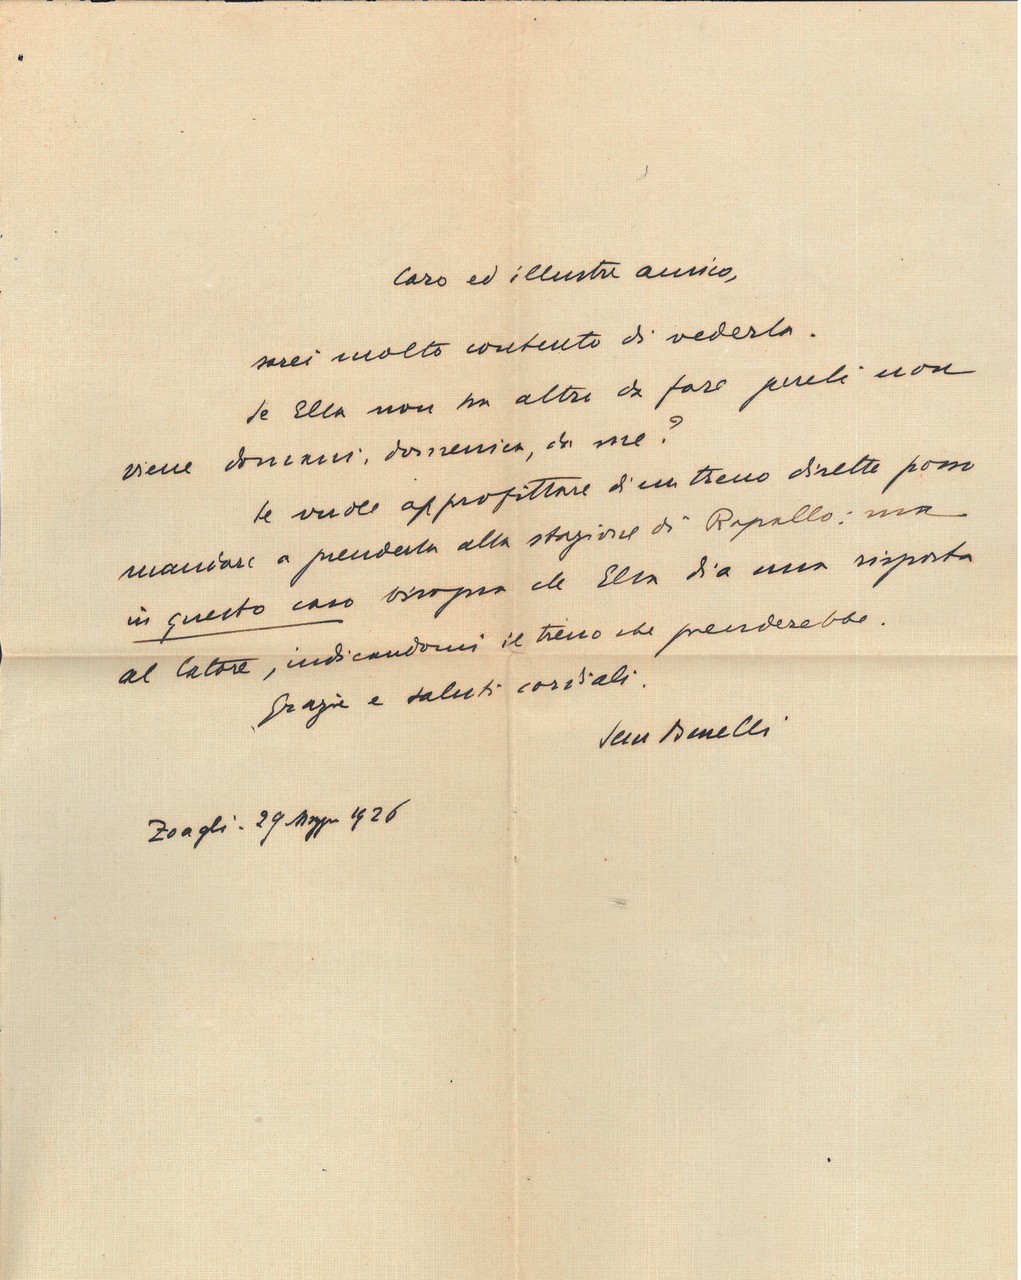 Caro ed illustre amico,
sarei molto contento di vederla.
Se Ella non ha altro da fare perché non
viene domani, domenica, da me?
Se vuole approfittare di un treno diretto posso
mandare a prenderla alla stazione di Rapallo: ma
in questo caso bisogna che Ella dia una risposta
al latore, indicandomi il treno che prenderebbe.
Grazie e saluti cordiali.
Sem Benelli
Zoagli. 29 Magg 1926